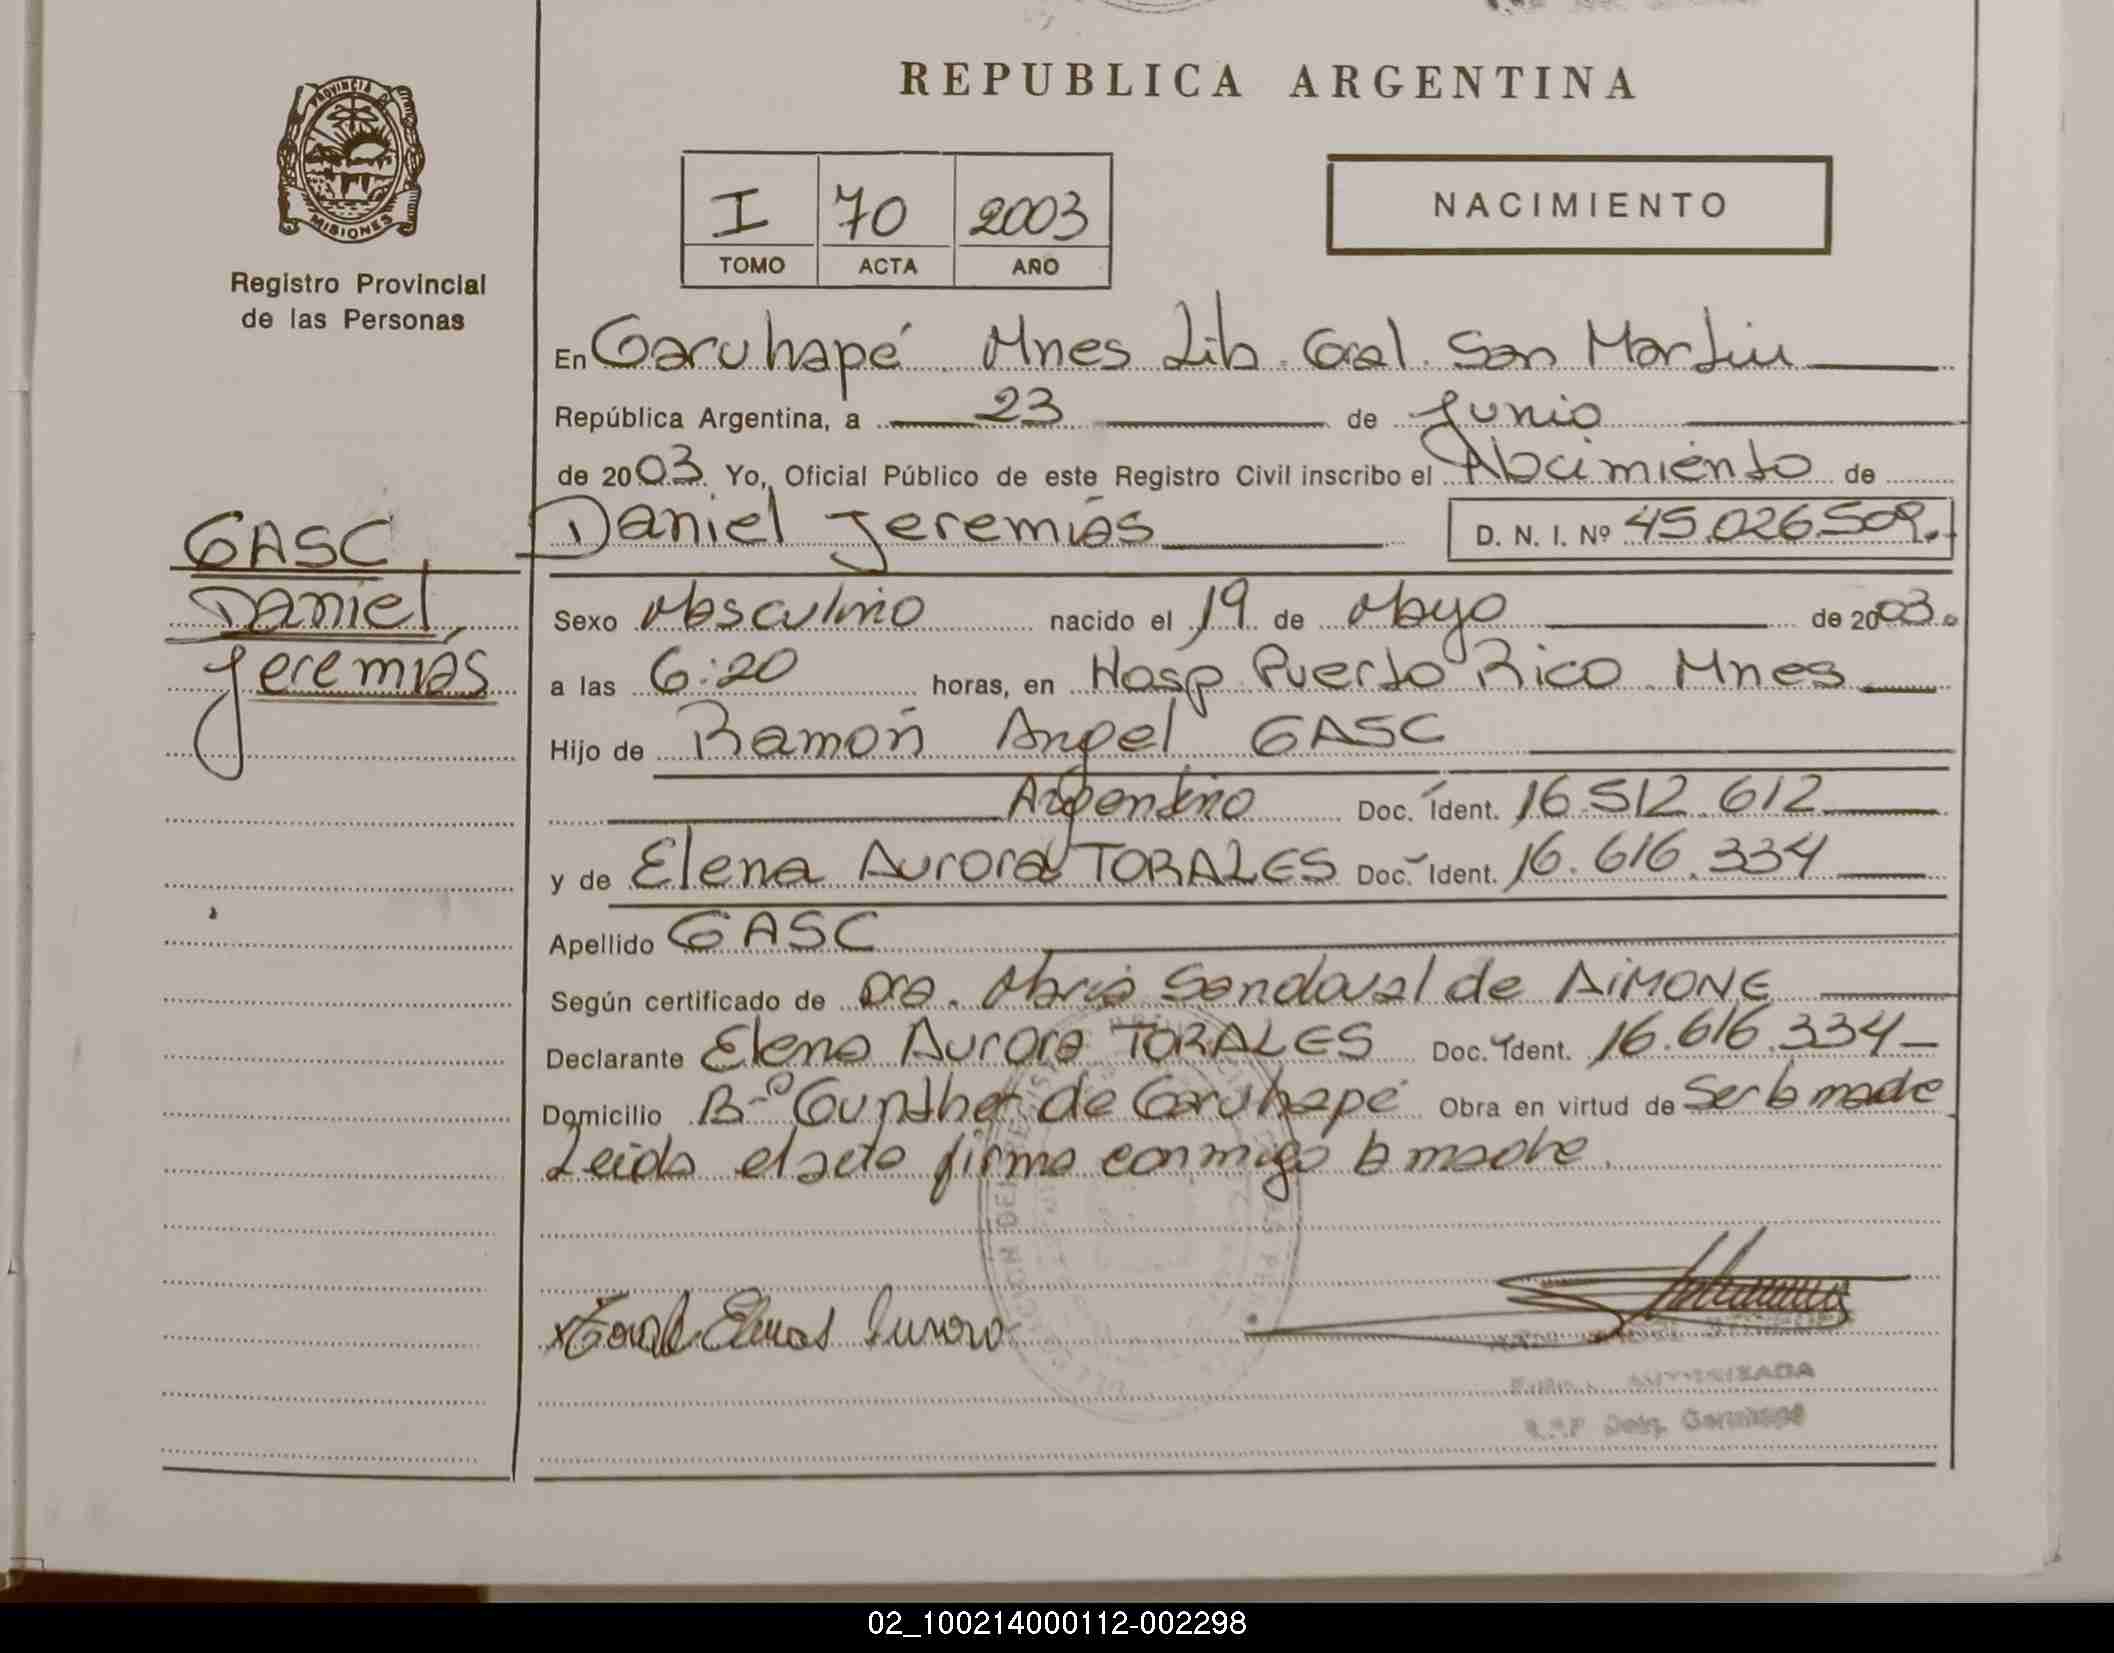 REPUBLICA ARGENTINA
PROVINCIA DE
MISIONES
Registro Provincial
de las Personas
I 70 2003
TOMO ACTA AÑO
NACIMIENTO
En Garuhapé Mnes Lib. Gral. San Martin
República Argentina, a 23 de Junio
de 2003. Yo, Oficial Público de este Registro Civil inscribo el Nacimiento de
Daniel Jeremias D. N. I. Nº 45.026.509.
GASC
Daniel,
Jeremias
Sexo Masculino nacido el 19 de Mayo de 2003.
a las 6:20 horas, en Hosp Puerto Rico Mnes
Hijo de Ramón Angel GASC
Argentino Doc. Ident. 16.512.612
y de Elena Aurora TORALES Doc. Ident. 16.616.334
Apellido GASC
Según certificado de Dra. Maria Sandoval de AIMONE
Declarante Elena Aurora TORALES Doc. Ident. 16.616.334
Domicilio B-º Gunther de Garuhapé Obra en virtud de Ser la madre
Leida el acta firma conmigo la madre.
AUTORIZADA
Deleg. Garuhapé
02_100214000112-002298